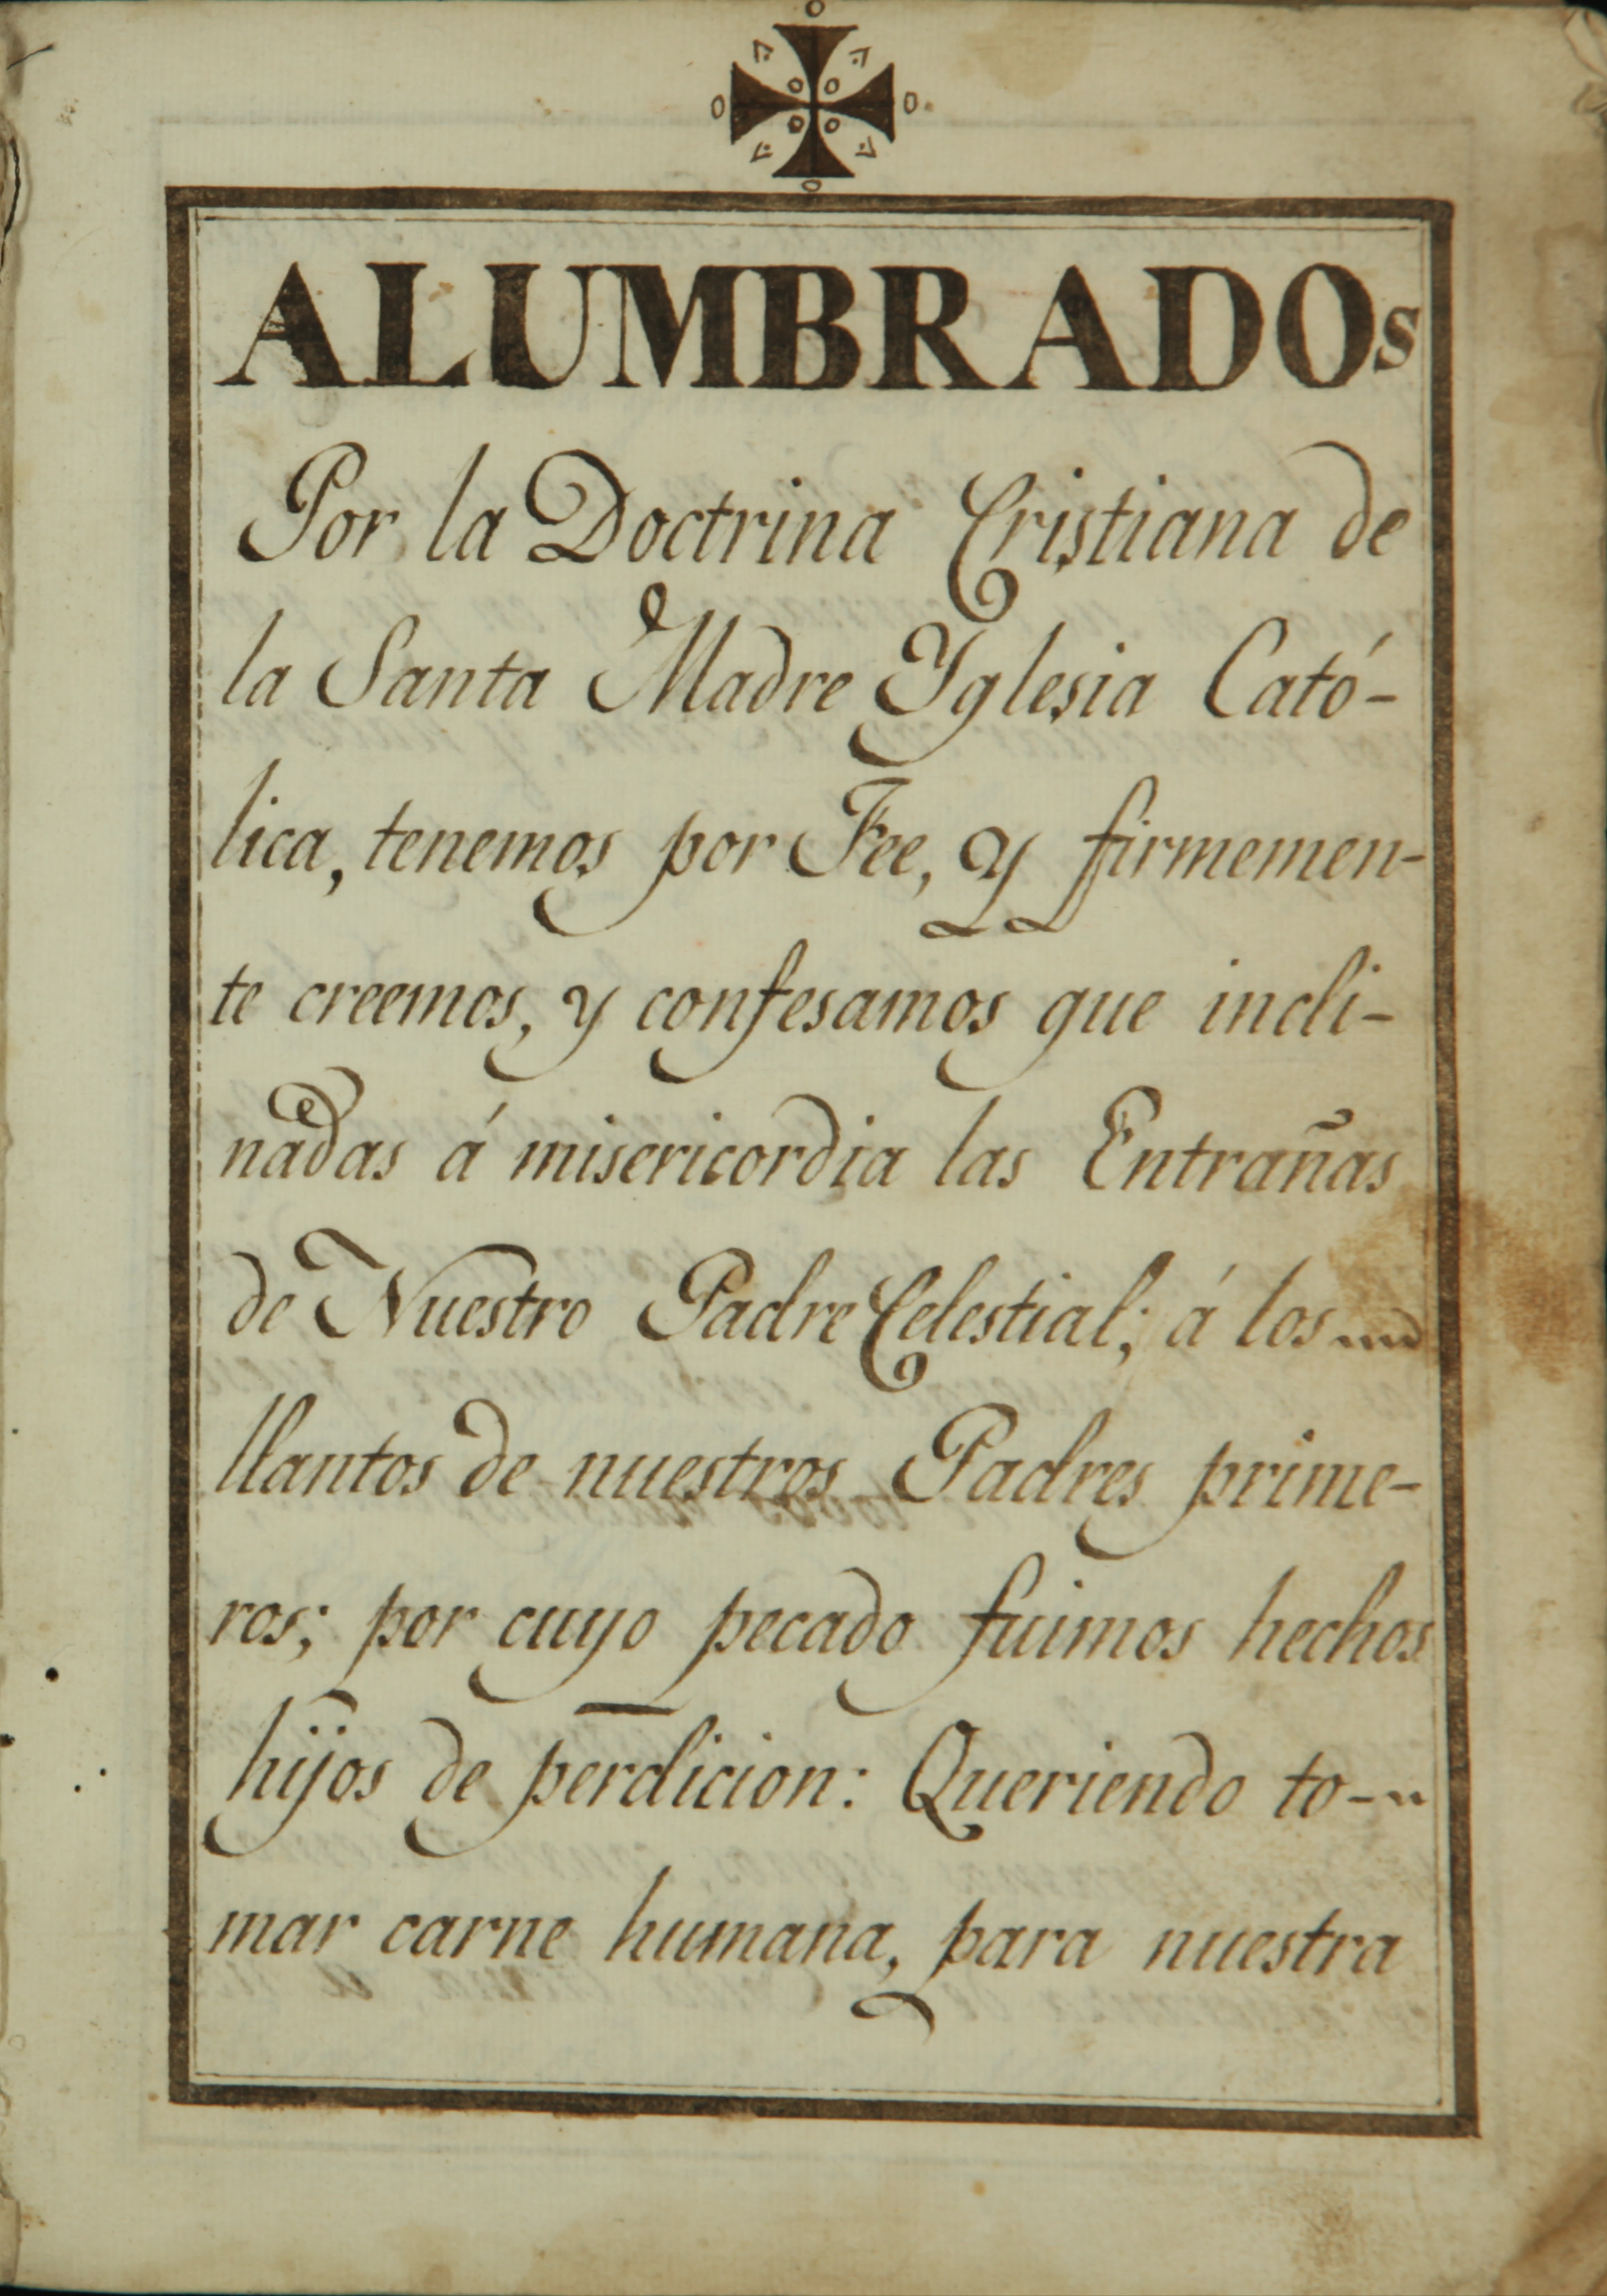 ALUMBRADOs
Por la Doctrina Cristiana de
la Santa Madre Yglesia Cató-
lica, tenemos por Fee, y firmemen-
te creemos, y confesamos que incli-
nadas á misericordia las Entrañas
de Nuestro Padre Celestial; á los
llantos de nuestros Padres prime-
ros; por cuyo pecado fuimos hechos
hijos de perdicion: Queriendo to-
mar carne humana, para nuestra